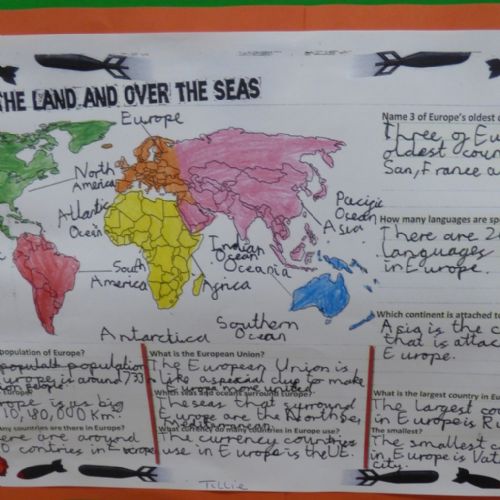 THE LAND AND OVER THE SEAS
Europe
North
America
Atlantic
Ocean
South
America
Africa
Indian
Ocean
Oceania
Pacific
Ocean
Asia
Southern
Ocean
Antarctica
Name 3 of Europe's oldest
Three of Eu
oldest coun
San, France a
How many languages are spo
There are 2
languages
in Europe.
Which continent is attached to
Asia is the c
that is attac
Europe.
population of Europe?
population
Europe is around
is as big
10,180,000 Km
any countries are there in Europe?
ere are around
contries in Europe
What is the European Union?
The European Union is
like a special club to make
Europe more united
Which seas and oceans surround Europe?
seas that surround
Europe are the North Sea,
What currency do many countries in Europe use?
The currency countries
use in Europe is the UE.
What is the largest country in Eu
The largest co
in Europe is Ru
The smallest?
The smallest c
in Europe is Vat
city.
Tillie